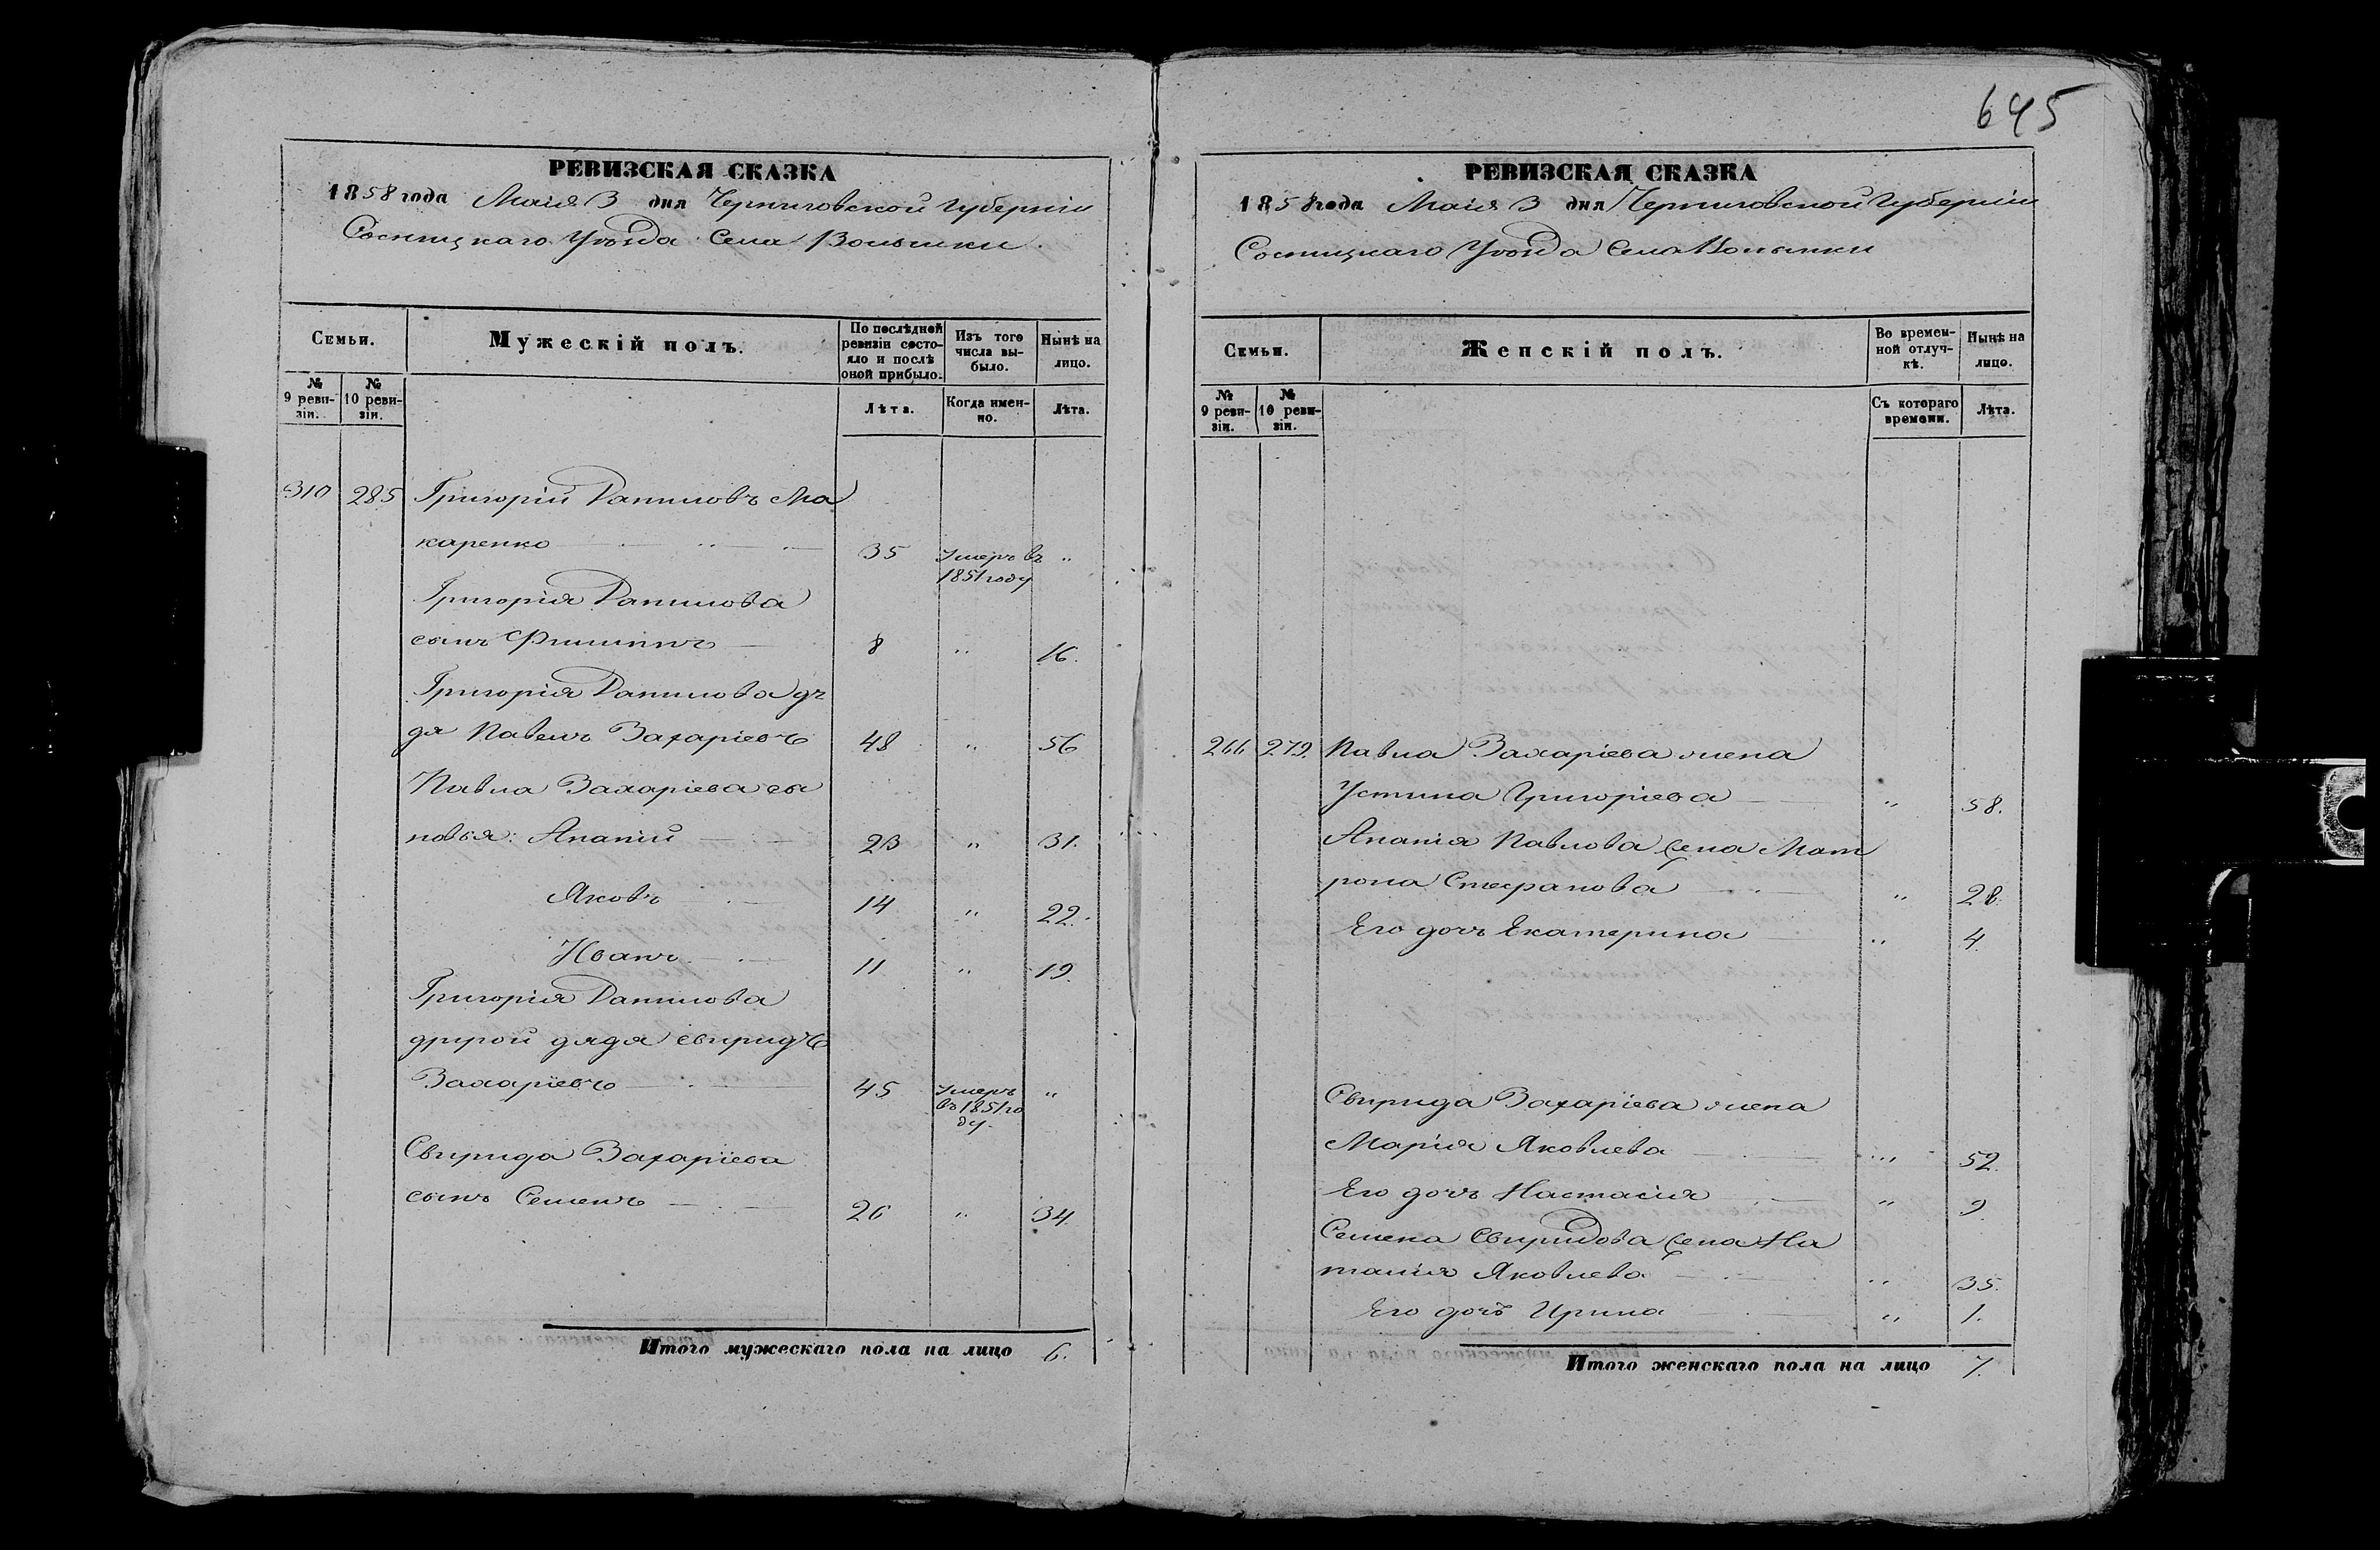 645
РЕВИЗСКАЯ СКАЗКА
1858 года Маія 3 дня Черниговской Губерніи
Сосницкаго Уѣзда Села Волынки.
Семьи.
Мужескій полъ.
По послѣдней ревизіи состояло и послѣ оной прибыло.
Изъ того числа выбыло.
Нынѣ на лицо.
№ 9 ревизіи.
№ 10 ревизіи.
Лѣта.
Когда именно.
Лѣта.
310 285 Григорій Даниловъ Ма
каренко 35 Умеръ въ 1851 году "
Григорія Данилова
сынъ Филиппъ 8 " 16.
Григорія Данилова дя
дя Павелъ Захаріевъ 48 " 56
Павла Захаріева сы
новья: Ананій 23 " 31.
Яковъ 14 " 22.
Иванъ 11 " 19.
Григорія Данилова
другой дядя Свиридъ
Захаріевъ 45 Умеръ въ 1851 го ду. "
Свирида Захаріева
сынъ Семенъ 26 " 34.
Итого мужескаго пола на лицо 6.
РЕВИЗСКАЯ СКАЗКА
1858 года Маія 3 дня Черниговской Губерніи
Сосницкаго Уѣзда Села Волынки
Семьи.
Женскій полъ.
Во временной отлучкѣ.
Нынѣ на лицо.
№ 9 ревизіи.
№ 10 ревизіи.
Съ котораго времени.
Лѣта.
266 279. Павла Захаріева жена
Устина Григоріева " 58.
Ананія Павлова жена Мат
рона Стефанова " 28.
Его дочь Екатерина " 4.
Свирида Захаріева жена
Марія Яковлева " 52.
Его дочь Настасія " 9.
Семена Свиридова жена На
талія Яковлева " 35.
Его дочь Ирина " 1.
Итого женскаго пола на лицо 7.